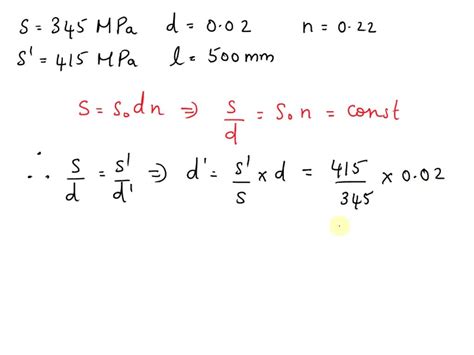 S = 345 MPa d = 0.02 n = 0.22
S' = 415 MPa l = 500 mm
S = S₀ d n ⇒ S/d = S₀ n = const
∴ S/d = S'/d' ⇒ d' = S'/S × d = 415/345 × 0.02